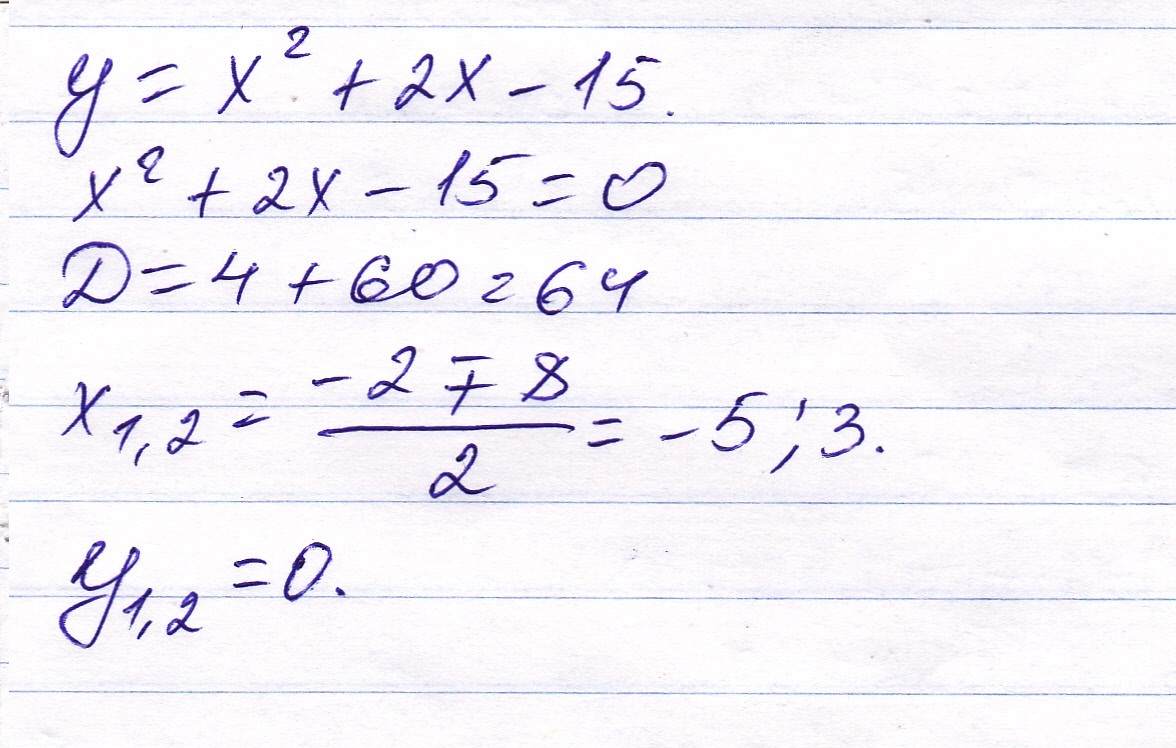 y = x² + 2x - 15.
x² + 2x - 15 = 0
D = 4 + 60 = 64
x₁,₂ = (-2 ∓ 8)/2 = -5; 3.
y₁,₂ = 0.